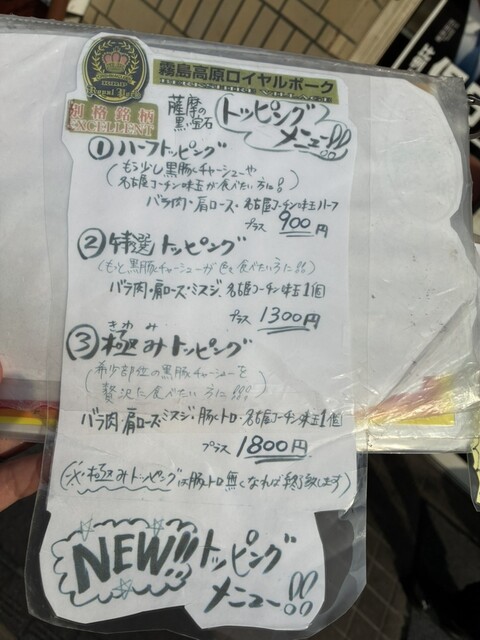 霧島高原ロイヤルポーク
Royal Pork
別格銘柄
EXCELLENT
薩摩の
黒い宝石
トッピング
メニュー!!
① ハーフトッピング
(もう少し黒豚チャーシューや
名古屋コーチン味玉が食べたい方に!)
バラ肉・肩ロース・名古屋コーチン味玉ハーフ
プラス 900円
② 特選トッピング
(もっと黒豚チャーシューが色々食べたい方に!!)
バラ肉・肩ロース・ミスジ、名古屋コーチン味玉1個
プラス 1300円
きわみ
③ 極みトッピング
(希少部位の黒豚チャーシューを
贅沢に食べたい方に!!!)
バラ肉・肩ロース・ミスジ・豚トロ・名古屋コーチン味玉1個
プラス 1800円
(※極みトッピングは豚トロ無くなれば終了致します)
NEW!! トッピング
メニュー!!